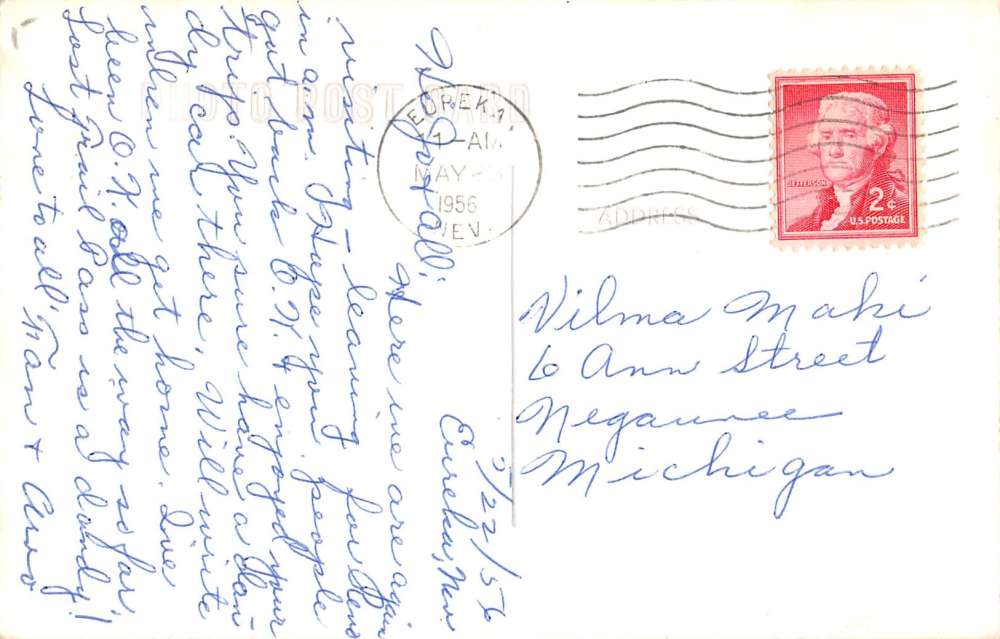 PHOTO POST CARD
5/22/56
Eureka, Nev.
Hi You all:
Here we are again
visiting - leaving for Reno
in a.m. Hope you people
got back O.K. & enjoyed your
trip. You sure have a dan-
dy car there. Will write
when we get home. Ive
been O.K. all the way so far,
Lost Trail Pass is a dandy!
Love to all, Fran + Arvo
EUREKA
11-AM
MAY 23
1956
NEV.
ADDRESS
JEFFERSON
2¢
U.S. POSTAGE
Vilma Maki
6 Ann Street
Negaunee
Michigan